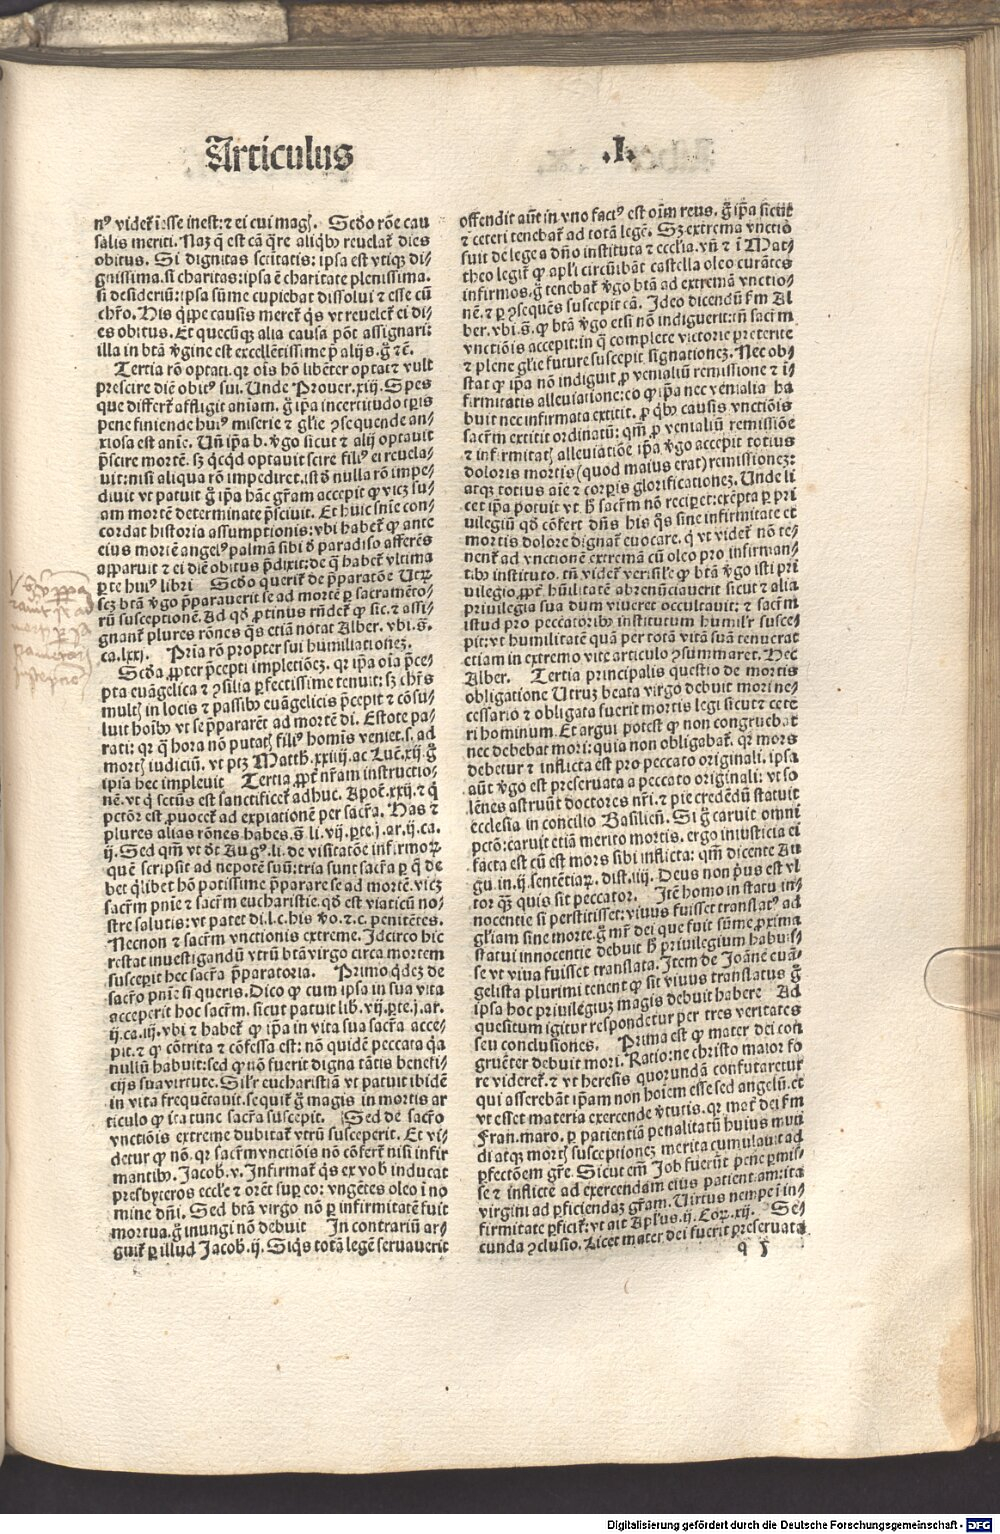 Articulus .I.
nꝰ videt̃ iesse inest: ⁊ ei cui magꝭ. Scd̾o rõe cau
salis meriti. Naꝫ q̃ est cã q̃re aliqͥbꝰ reuelat̃ dies
obitus. Si dignitas sctitatis: ipsa est vtiqꝫ di-
gnissima. si charitas: ipsa ẽ charitate plenissima.
si desideriũ: ipsa sũme cupiebat dissolui ⁊ esse cũ
chr̃o. His qͥppe causis meret̃ qͥs vt reuelet̃ ei di-
es obitus. Et quecũqꝫ alia causa põt assignari:
illa in btã ꝟgine est excellẽtissime p̃ alijs. g̃ ⁊c̃.
Tertia rõ optati. qꝛ oĩs hõ libẽter optat ⁊ vult
prescire diẽ obitꝰ sui. Unde Prouer. xiij. Spes
que differt̃ affligit aniam. g̃ ipa incertitudo tꝑis
pene finiende huiꝰ miserie ⁊ glie ꝯsequende an-
xiosa est anie. Uñ ipa b. ꝟgo sicut ⁊ alij optauit
p̃scire mortẽ. sꝫ qͥcqͥd optauit scire filiꝰ ei reuela-
uit: nisi aliqua rõ impediret. ist̾o nulla rõ impe-
diuit vt patuit g̃ ipa hãc gr̃am accepit ꝙ vicꝫ su-
am mortẽ determinate p̃sciuit. Et huic snĩe con-
cordat historia assumptionis: vbi habet̃ ꝙ ante
eius mortẽ angelꝰ palmã sibi d̾ paradiso afferẽs
apparuit ⁊ ei diẽ obitus p̃dixit: de q̃ habet̃ vltima
ꝑte huiꝰ libri Scd̾o querit̃ de p̃paratõe Utꝝ
scꝫ btã ꝟgo p̃parauerit se ad mortẽ ꝑ sacramẽto-
rũ susceptionẽ. Ad qd̾ ꝓtinus rñdet̃ ꝙ sic. ⁊ assi-
gnant̃ plures rõnes qͣs etiã notat Alber. vbi. s̃.
ca. lxxj. Pria rõ propter sui humiliationeꝫ.
Scd̾a ꝓpter p̃cepti impletiõeꝫ. qꝛ ipa oĩa p̃ce-
pta euãgelica ⁊ ꝯsilia ꝑfectissime tenuit: sꝫ chr̃s
multꝭ in locis ⁊ passibꝰ euãgelicis p̃cepit ⁊ cõsu-
luit hoĩbꝰ vt se p̃pararẽt ad mortẽ di. Estote pa-
rati: qꝛ q̃ hora nõ putatꝭ filiꝰ homĩs veniet. s. ad
mortꝭ iudiciũ. vt ptꝫ Matth. xxiiij. ac Luc̃. xij. g̃
ipa hec impleuit Tertia ꝓpt̃ nr̃am instructio-
nẽ. vt qͥ sctũs est sanctificet̃ adhuc. Apoc̃. xxij. ⁊ qͥ
pctõr est ꝓuocet̃ ad expiationẽ per sacr̃a. Has ⁊
plures alias rõnes habes. s̃. li. vij. ꝑte. j. ar. ij. ca.
ij. Sed qm̃ vt d̾t Augꝰ. li. de visitatõe infirmoꝝ
quẽ scripsit ad nepotẽ suũ: tria sunt sacr̃a ꝑ q̃ de
bet qͥlibet hõ potissime p̃parare se ad mortẽ. vicꝫ
sacr̃m pnĩe ⁊ sacr̃m eucharistie. qd̾ est viaticũ no-
stre salutis: vt patet di. l. c. his ꝟo. ⁊. c. penitẽtes.
Necnon ⁊ sacr̃m vnctionis extreme. Idcirco hic
restat inuestigandũ vtrũ btã virgo circa mortem
susceperit hec sacr̃a p̃paratoria. Primo qͥdeꝫ de
sacr̃o pnĩe si queris. Dico ꝙ cum ipsa in sua vita
acceperit hoc sacr̃m. sicut patuit lib. vij. ꝑte. j. ar.
ij. ca. iij. vbi ⁊ habet̃ ꝙ ipa in vita sua sacr̃a acce-
pit. ⁊ ꝙ cõtrita ⁊ cõfessa est: nõ quidẽ peccata q̃a
nullũ habuit: sed ꝙ nõ fuerit digna tãtis benefi-
cijs sua virtute. Silr̃ eucharistiã vt patuit ibidẽ
in vita frequẽtauit. sequit̃ g̃ magis in mortis ar
ticulo ꝙ ita tunc sacr̃a suscepit. Sed de sacr̃o
vnctiõis extreme dubitat̃ vtrũ susceperit. Et vi-
detur ꝙ nõ. qꝛ sacr̃m vnctiõis nõ cõfert̃ nisi infir
mantibꝰ. Jacob. v. Infirmat̃ qͥs ex vob̾ inducat
presbyteros eccłe ⁊ orẽt suꝑ eo: vngẽtes oleo ĩ no
mine dñi. Sed btã virgo nõ ꝑ infirmitatẽ fuit
mortua. g̃ inungi nõ debuit In contrariũ ar-
guit̃ ꝑ illud Jacob. ij. Siqͥs totã legẽ seruauerit
offendit aũt in vno factꝰ est oĩm reus. g̃ ipa sicut
⁊ ceteri tenebat̃ ad totã legẽ. Sꝫ extrema vnctio
fuit de lege a dño instituta ⁊ eccłia. vñ ⁊ ĩ Mat-
theo legit̃ ꝙ apłi circũibãt castella oleo curãtes
infirmos. g̃ tenebat̃ ꝟgo btã ad extremã vnctio-
nẽ. ⁊ ꝑ ꝯsequẽs suscepit eã. Ideo dicendũ ẜm Al
ber. vbi. s̃. ꝙ btã ꝟgo etsi nõ indiguerit: tñ sacr̃m
vnctiõis accepit: in q̃ complete victorie preterite
⁊ plene glie future suscepit signationeꝫ. Nec ob-
stat ꝙ ipa nõ indiguit ꝓ venialiũ remissione ⁊ ĩ-
firmitatis alleuiatione: eo ꝙ ipa nec venialia ha
buit nec infirmata extitit. ꝓ qͥbꝰ causis vnctiõis
sacr̃m extitit ordinatũ: qm̃ ꝓ venialiũ remissiõe
⁊ infirmitatꝭ alleuiatiõe ipa ꝟgo accepit totius
doloris mortis (quod maius erat) remissioneꝫ:
atqꝫ totius aĩe ⁊ corꝑis glorificationeꝫ. Unde li
cet ipa potuit vt h̾ sacr̃m nõ reciꝑet: exẽpta ꝑ pri
uilegiũ qd̾ cõfert dñs his qͥs sine infirmitate et
mortis dolore dignat̃ euocare. qͥ vt videt̃ nõ te-
nent̃ ad vnctionẽ extremã cũ oleo pro infirman-
tibꝰ instituto. tñ videt̃ veri sił'e ꝙ btã ꝟgo isti pri
uilegio ꝓpt̃ hũilitatẽ abrenũciauerit sicut ⁊ alia
priuilegia sua dum viueret occultauit: ⁊ sacr̃m
istud pro peccatoribꝰ institutum humilr̃ susce-
pit: vt humilitatẽ quã per totã vitã suã tenuerat
etiam in extremo vite articulo ꝯsummaret. Hec
Alber. Tertia principalis questio de mortis
obligatione Utruꝫ beata virgo debuit mori ne-
cessario ⁊ obligata fuerit mortis legi sicut ⁊ cete
ri hominum. Et argui potest ꝙ non congruebat
nec debebat mori: quia non obligabat̃. qꝛ mors
debetur ⁊ inflicta est pro peccato originali. ipsa
aũt ꝟgo est preseruata a peccato originali: vt so
lẽnes astruũt doctores nr̃i. ⁊ pie credẽdũ statuit
ecclesia in concilio Basilieñ. Si g̃ caruit omni
pctõ: caruit etiã merito mortis. ergo iniusticia ei
facta est cũ est mors sibi inflicta: qm̃ dicente Au
gu. in. ij. sentẽtiaꝝ. dist. iiij. Deus non pꝰus est vl
tor qͣꝫ quis sit peccator. Itẽ homo in statu in-
nocentie si perstitisset: viuus fuisset translatꝰ ad
gliam sine morte. g̃ mr̃ dei que fuit sũme ꝓxima
statui innocentie debuit h̾ priuilegium habuis-
se vt viua fuisset translata. Item de Joãne euã-
gelista plurimi tenent ꝙ sit viuus translatus g̃
ipsa hoc priuilegiuꝫ magis debuit habere Ad
quesitum igitur respondetur per tres veritates
seu conclusiones. Prima est ꝙ mater dei con
gruẽter debuit mori. Ratio: ne christo maior fo
re videret̃. ⁊ vt heresis quorundã confutaretur
qui asserebãt ipam non hoĩem esse sed angelũ. et
vt esset materia exercende ꝟtutis. qꝛ mat̃ dei ẜm
Fran. maro. ꝑ patientiã penalitatũ huius mun
di atqꝫ mortꝭ susceptioneꝫ merita cumulauit ad
ꝑfectõem gr̃e. Sicut em̃ Job fuerũt pene ꝑmis-
se ⁊ inflicte ad exercendam eius patientiam: ita
virgini ad ꝑficiendaꝫ gr̃am. Uirtus nempe ĩ in-
firmitate ꝑficit̃: vt ait Apłus. ij. Coꝝ. xij. Se-
cunda ꝯclusio. Licet mater dei fuerit preseruata
q 5
Digitalisierung gefördert durch die Deutsche Forschungsgemeinschaft - DFG